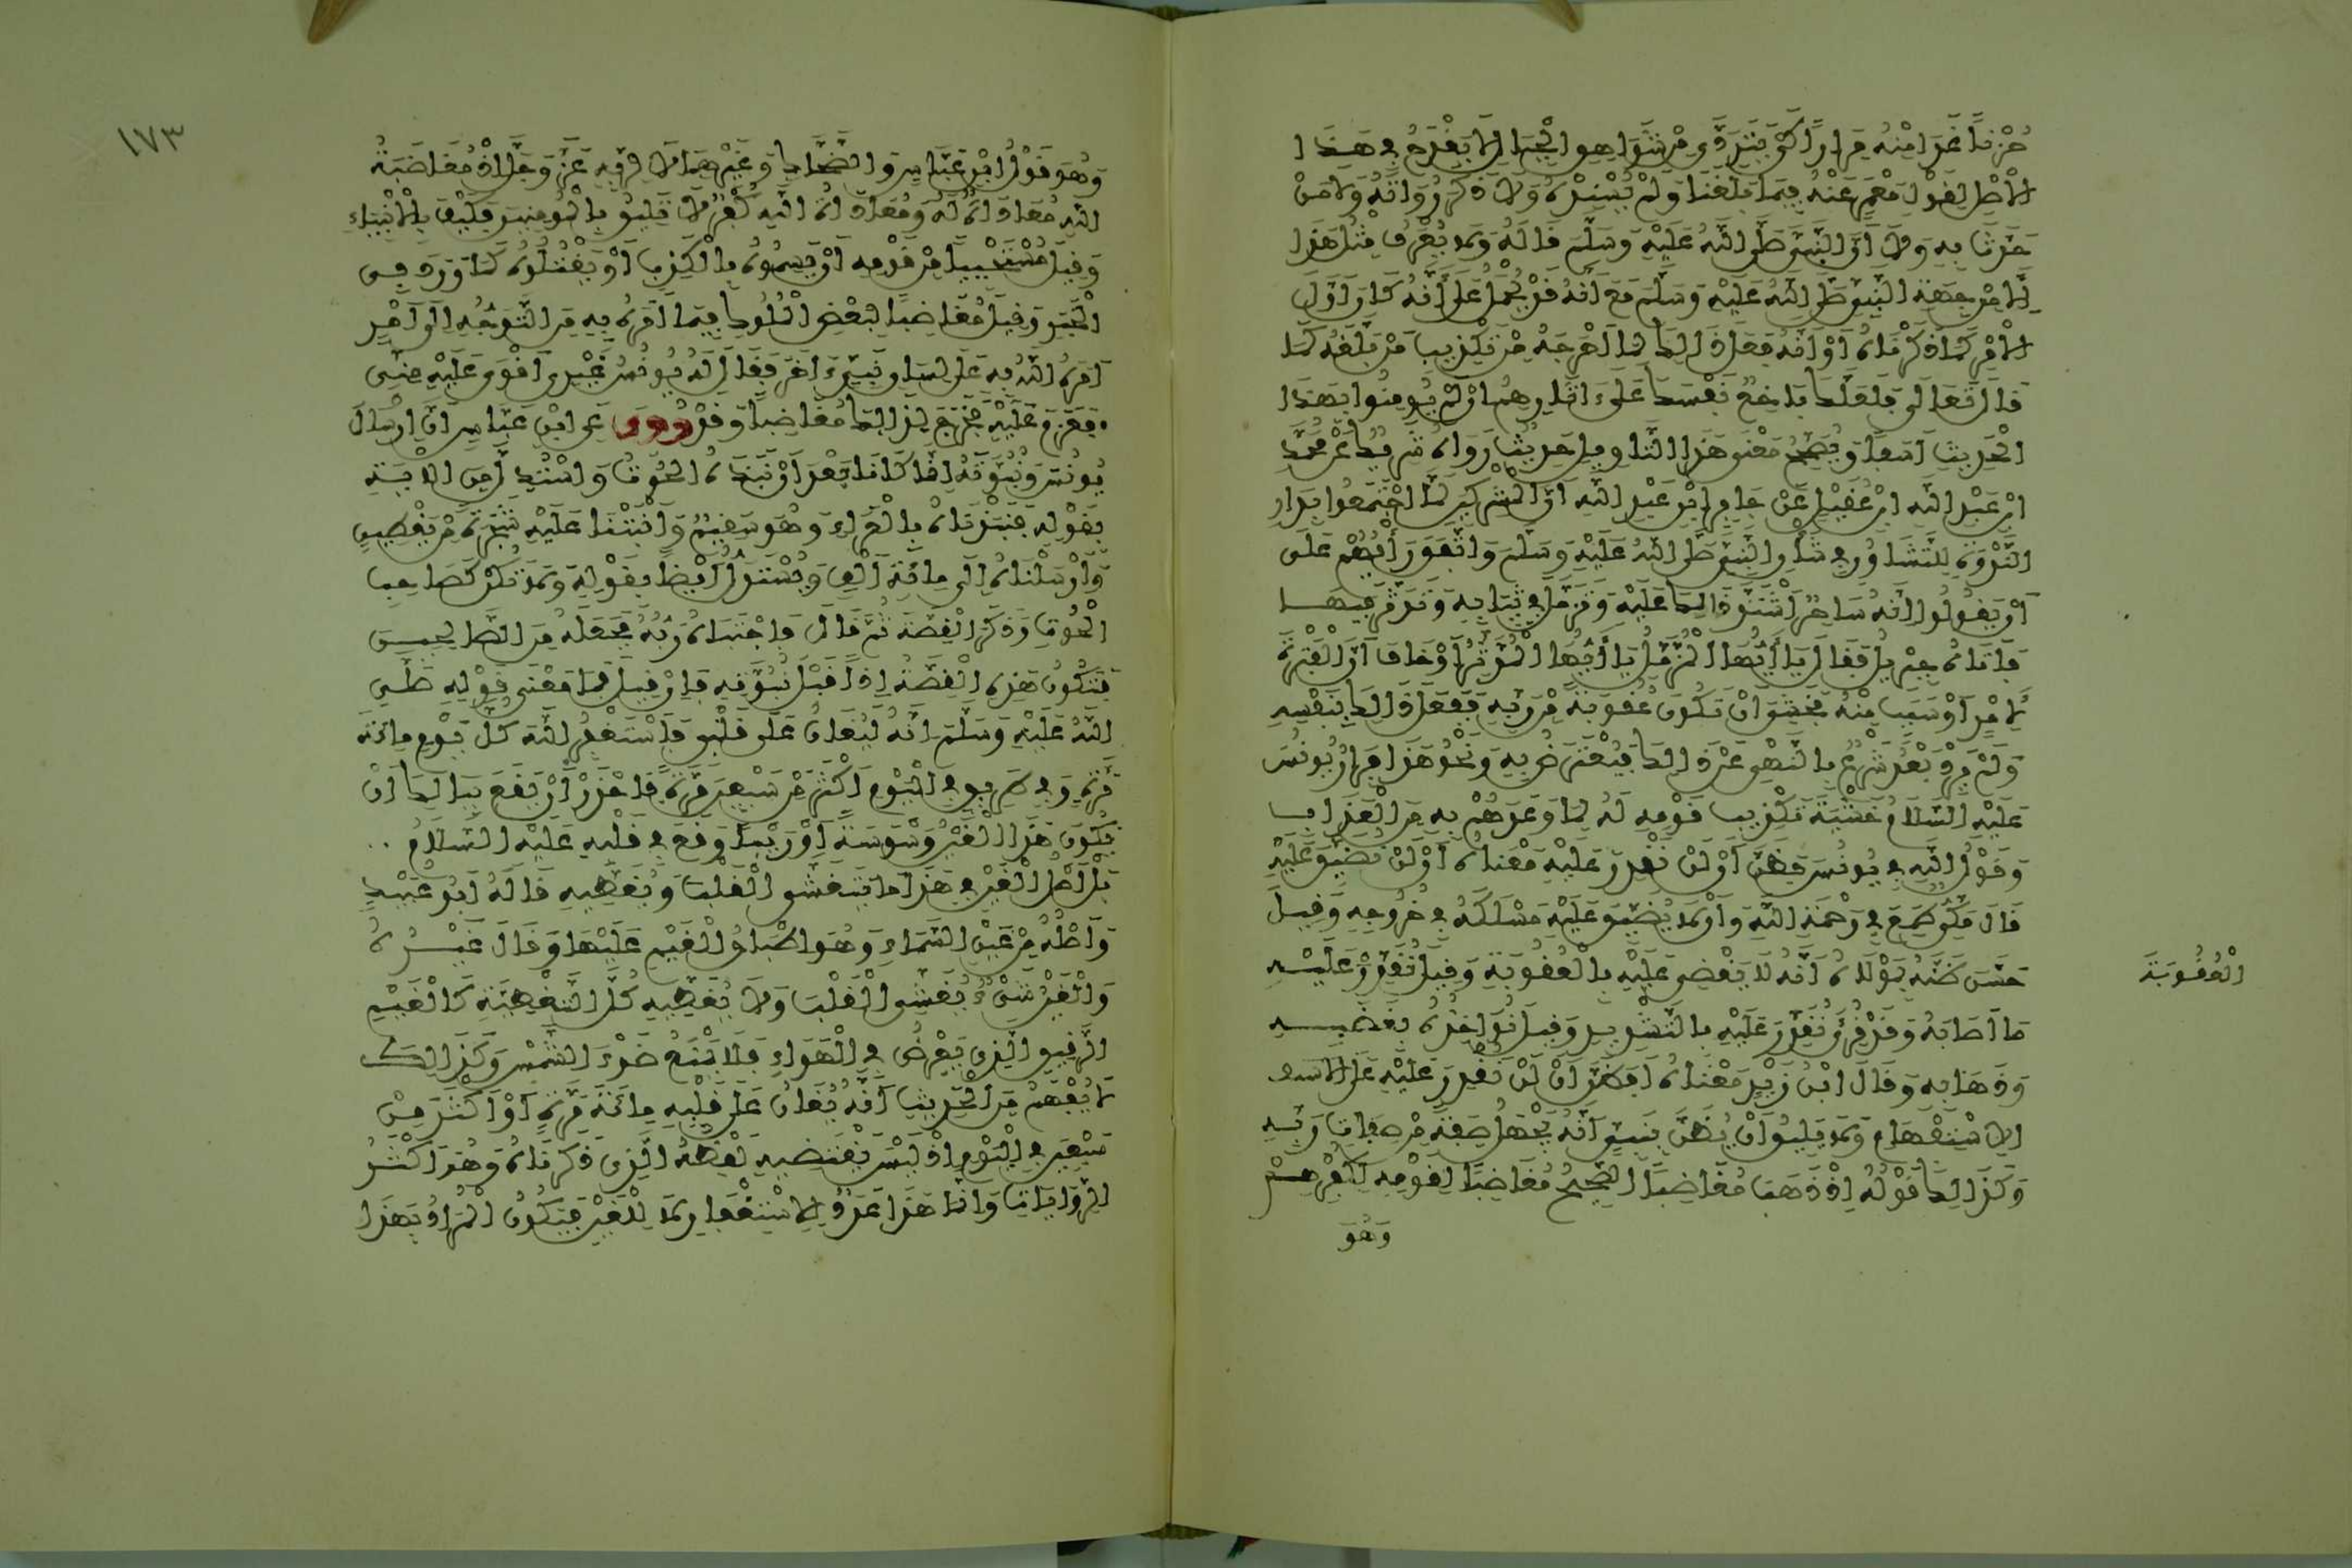 حُزْنًا غَدَا مِنْهُ مِرَارًا كَيْ يَتَرَدَّى مِنْ شَوَاهِقِ الْجِبَالِ لَا يَقْدَحُ فِي هَذَا
الْأَصْلِ لِقَوْلِ مَعْمَرٍ عَنْهُ فِيمَا بَلَغَنَا وَلَمْ يُسْنِدْهُ وَلَا ذَكَرَ رُوَاتَهُ وَلَا مَنْ
حَدَّثَ بِهِ وَلَا أَنَّ النَّبِيَّ صَلَّى اللَّهُ عَلَيْهِ وَسَلَّمَ قَالَهُ وَلَا يُعْرَفُ مِثْلُ هَذَا
إِلَّا مِنْ جِهَةِ النَّبِيِّ صَلَّى اللَّهُ عَلَيْهِ وَسَلَّمَ مَعَ أَنَّهُ قَدْ يُحْمَلُ عَلَى أَنَّهُ كَانَ أَوَّلَ
الْأَمْرِ كَمَا ذَكَرْنَاهُ أَوْ أَنَّهُ فَعَلَ ذَلِكَ لِمَا أَخْرَجَهُ مِنْ تَكْذِيبِ مَنْ بَلَّغَهُ كَمَا
قَالَ تَعَالَى فَلَعَلَّكَ بَاخِعٌ نَفْسَكَ عَلَى آثَارِهِمْ إِنْ لَمْ يُؤْمِنُوا بِهَذَا
الْحَدِيثِ أَسَفًا وَيُصَحِّحُ مَعْنَى هَذَا التَّأْوِيلِ حَدِيثٌ رَوَاهُ شَرِيكٌ عَنْ مُحَمَّدِ
ابْنِ عَبْدِ اللَّهِ ابْنِ عُقَيْلٍ عَنْ جَابِرِ ابْنِ عَبْدِ اللَّهِ أَنَّ الْمُشْرِكِينَ لَمَّا اجْتَمَعُوا بِدَارِ
النَّدْوَةِ لِلتَّشَاوُرِ فِي شَأْنِ النَّبِيِّ صَلَّى اللَّهُ عَلَيْهِ وَسَلَّمَ وَاتَّفَقَ رَأْيُهُمْ عَلَى
أَنْ يَقُولُوا إِنَّهُ سَاحِرٌ اشْتَدَّ ذَلِكَ عَلَيْهِ وَتَزَمَّلَ فِي ثِيَابِهِ وَتَدَثَّرَ فِيهَا
فَأَتَاهُ جِبْرِيلُ فَقَالَ يَا أَيُّهَا الْمُزَّمِّلُ يَا أَيُّهَا الْمُدَّثِّرُ أَوْ خَافَ أَنَّ الْفَتْرَةَ
لِأَمْرٍ أَوْ سَبَبٍ مِنْهُ فَخَشِيَ أَنْ تَكُونَ عُقُوبَةً مِنْ رَبِّهِ فَفَعَلَ ذَلِكَ بِنَفْسِهِ
وَلَمْ يَرِدْ بَعْدُ شَرْعٌ بِالنَّهْيِ عَنْ ذَلِكَ فَيُعْتَرَضُ بِهِ وَنَحْوُ هَذَا فِرَارُ يُونُسَ
عَلَيْهِ السَّلَامُ خَشْيَةَ تَكْذِيبِ قَوْمِهِ لَهُ لِمَا وَعَدَهُمْ بِهِ مِنَ الْعَذَابِ
وَقَوْلُ اللَّهِ فِي يُونُسَ فَظَنَّ أَنْ لَنْ نَقْدِرَ عَلَيْهِ مَعْنَاهُ أَنْ لَنْ نُضَيِّقَ عَلَيْهِ
قَالَ مَكِّيٌّ طَمِعَ فِي رَحْمَةِ اللَّهِ وَأَنْ لَا يُضَيِّقَ عَلَيْهِ مَسْلَكَهُ فِي خُرُوجِهِ وَقِيلَ
حَسَّنَ ظَنَّهُ بِمَوْلَاهُ أَنَّهُ لَا يَقْضِي عَلَيْهِ بِالْعُقُوبَةِ وَقِيلَ نُقَدِّرُ عَلَيْهِ
الْعُقُوبَةَ
مَا أَصَابَهُ وَقَدْ قُرِئَ نُقَدِّرَ عَلَيْهِ بِالتَّشْدِيدِ وَقِيلَ نُؤَاخِذُهُ بِغَضَبِهِ
وَذَهَابِهِ وَقَالَ ابْنُ زَيْدٍ مَعْنَاهُ أَفَظَنَّ أَنْ لَنْ نَقْدِرَ عَلَيْهِ عَلَى
الِاسْتِفْهَامِ وَلَا يَلِيقُ أَنْ يُظَنَّ بِنَبِيٍّ أَنَّهُ يَجْهَلُ صِفَةً مِنْ صِفَاتِ رَبِّهِ
وَكَذَلِكَ قَوْلُهُ إِذْ ذَهَبَ مُغَاضِبًا الصَّحِيحُ مُغَاضِبًا لِقَوْمِهِ لِكُفْرِهِمْ
وَهُوَ
١٧٣
وَهُوَ قَوْلُ ابْنِ عَبَّاسٍ وَالضَّحَّاكِ وَغَيْرِهِمَا لَا لِرَبِّهِ عَزَّ وَجَلَّ إِذْ مُغَاضَبَةُ
اللَّهِ مُعَادَاةٌ لَهُ وَمُعَادَاةُ اللَّهِ كُفْرٌ لَا يَلِيقُ بِالْمُؤْمِنِينَ فَكَيْفَ بِالْأَنْبِيَاءِ
وَقِيلَ مُسْتَحْيِيًا مِنْ قَوْمِهِ أَنْ يَسِمُوهُ بِالْكَذِبِ أَوْ يَقْتُلُوهُ كَمَا وَرَدَ فِي
الْخَبَرِ وَقِيلَ مُغَاضِبًا لِبَعْضِ الْمُلُوكِ فِيمَا أَمَرَهُ بِهِ مِنَ التَّوَجُّهِ إِلَى أَمْرٍ
أَمَرَهُ اللَّهُ بِهِ عَلَى لِسَانِ نَبِيٍّ آخَرَ فَقَالَ لَهُ يُونُسُ غَيْرِي أَقْوَى عَلَيْهِ مِنِّي
فَعَزَمَ عَلَيْهِ فَخَرَجَ لِذَلِكَ مُغَاضِبًا وَقَدْ رُوِيَ عَنِ ابْنِ عَبَّاسٍ أَنَّ إِرْسَالَ
يُونُسَ وَنُبُوَّتَهُ إِنَّمَا كَانَا بَعْدَ أَنْ نَبَذَهُ الْحُوتُ وَاسْتُدِلَّ مِنَ الْآيَةِ
بِقَوْلِهِ فَنَبَذْنَاهُ بِالْعَرَاءِ وَهُوَ سَقِيمٌ وَأَنْبَتْنَا عَلَيْهِ شَجَرَةً مِنْ يَقْطِينٍ
وَأَرْسَلْنَاهُ إِلَى مِائَةِ أَلْفٍ وَيُسْتَدَلُّ أَيْضًا بِقَوْلِهِ وَلَا تَكُنْ كَصَاحِبِ
الْحُوتِ وَذَكَرَ الْقِصَّةَ ثُمَّ قَالَ فَاجْتَبَاهُ رَبُّهُ فَجَعَلَهُ مِنَ الصَّالِحِينَ
فَتَكُونُ هَذِهِ الْقِصَّةُ إِذًا قَبْلَ نُبُوَّتِهِ فَإِنْ قِيلَ فَمَا مَعْنَى قَوْلِهِ صَلَّى
اللَّهُ عَلَيْهِ وَسَلَّمَ إِنَّهُ لَيُغَانُ عَلَى قَلْبِي فَأَسْتَغْفِرُ اللَّهَ كُلَّ يَوْمٍ مِائَةَ
مَرَّةٍ وَفِي طَرِيقٍ فِي الْيَوْمِ أَكْثَرَ مِنْ سَبْعِينَ مَرَّةً فَاحْذَرْ أَنْ يَقَعَ بِبَالِكَ أَنْ
يَكُونَ هَذَا الْغَيْنُ وَسْوَسَةً أَوْ رَيْبًا وَقَعَ فِي قَلْبِهِ عَلَيْهِ السَّلَامُ
بَلْ أَصْلُ الْغَيْنِ فِي هَذَا مَا يَتَغَشَّى الْقَلْبَ وَيُغَطِّيهِ قَالَهُ أَبُو عُبَيْدٍ
وَأَصْلُهُ مِنْ غَيْنِ السَّمَاءِ وَهُوَ إِطْبَاقُ الْغَيْمِ عَلَيْهَا وَقَالَ غَيْرُهُ
وَالْغَيْنُ شَيْءٌ يُغَشِّي الْقَلْبَ وَلَا يُغَطِّيهِ كُلَّ التَّغْطِيَةِ كَالْغَيْمِ
الرَّقِيقِ الَّذِي يَعْرِضُ فِي الْهَوَاءِ فَلَا يَمْنَعُ ضَوْءَ الشَّمْسِ وَكَذَلِكَ
لَا يُفْهَمُ مِنَ الْحَدِيثِ أَنَّهُ يُغَانُ عَلَى قَلْبِهِ مِائَةَ مَرَّةٍ أَوْ أَكْثَرَ مِنْ
سَبْعِينَ فِي الْيَوْمِ إِذْ لَيْسَ يَقْتَضِيهِ لَفْظُهُ الَّذِي ذَكَرْنَاهُ وَهُوَ أَكْثَرُ
الرِّوَايَاتِ وَإِنَّمَا هَذَا عَدَدُ الِاسْتِغْفَارِ لَا لِلْغَيْنِ فَيَكُونُ الْمُرَادُ بِهَذَا